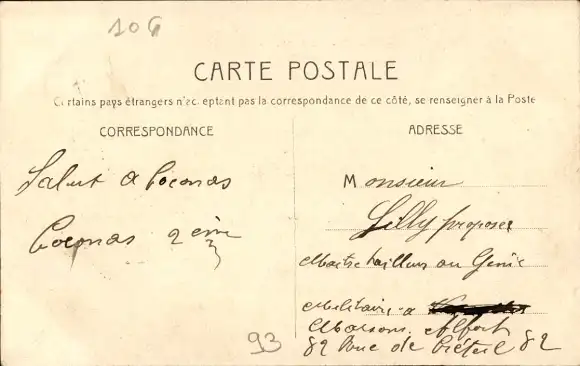 106
CARTE POSTALE
Certains pays étrangers n'acceptant pas la correspondance de ce côté, se renseigner à la Poste
CORRESPONDANCE
ADRESSE
Salut a Coconas
Coconas 2 ème
Monsieur
Lilly proposer
Maitre tailleur au Genie
Militaire a
Maisons Alfort
82 Rue de Créteil 82
93